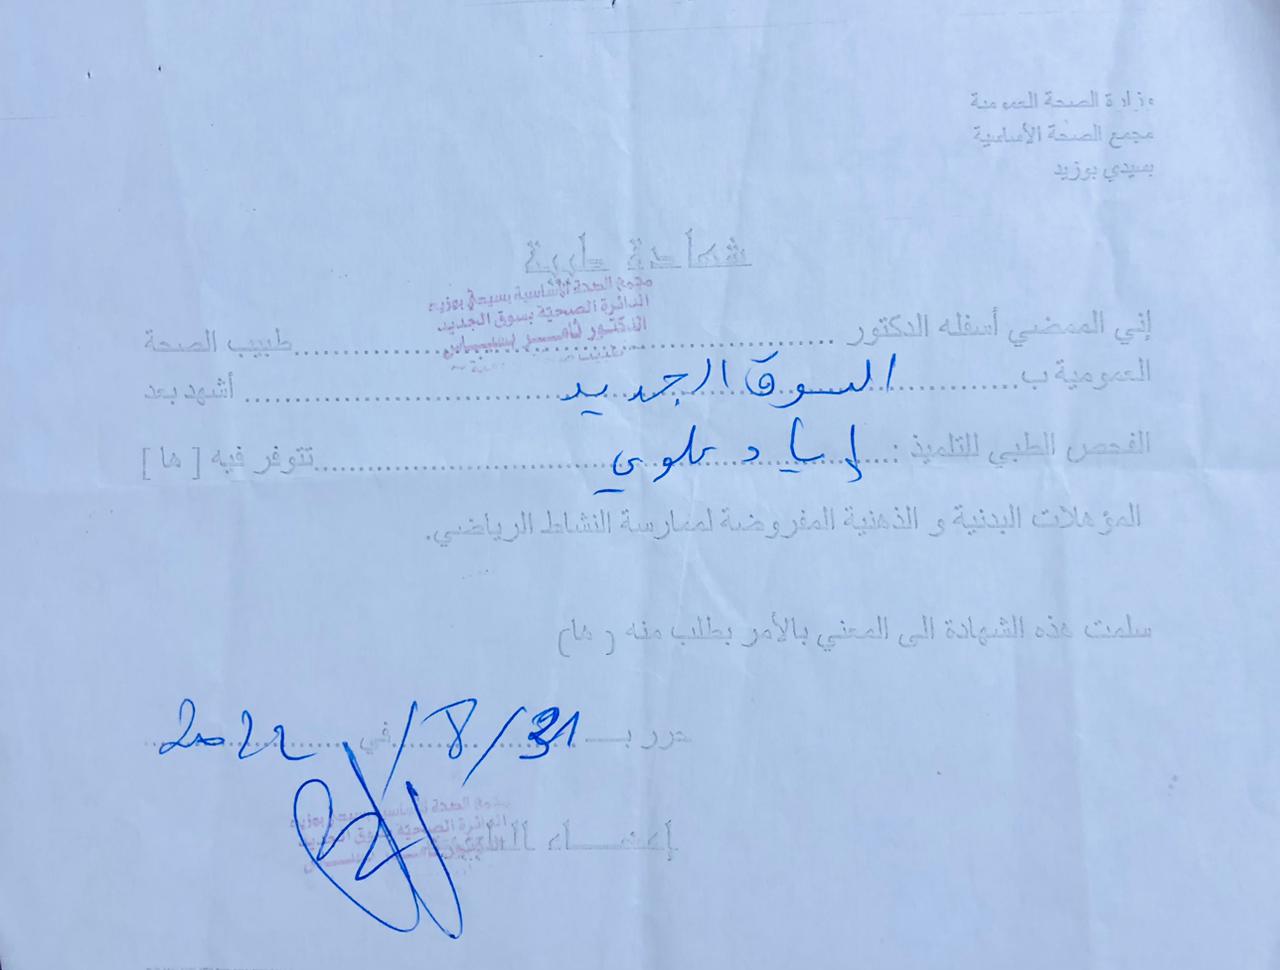 وزارة الصحة العمومية
مجمع الصحة الأساسية
بسيدي بوزيد
شهادة طبية
مجمع الصحة الأساسية بسيدي بوزيد
الدائرة الصحية بسوق الجديد
الدكتور ثامر
إني الممضي أسفله الدكتور ........................ طبيب الصحة
العمومية ب........ السوق الجديد ........ أشهد بعد
الفحص الطبي للتلميذ : ........ إياد علوي ........ تتوفر فيه [ ها ]
المؤهلات البدنية و الذهنية المفروضة لممارسة النشاط الرياضي.
سلمت هذه الشهادة الى المعني بالأمر بطلب منه ( ها )
حرر بـ ........ في ........ 31/8/2022
إمضاء الطبيب
مجمع الصحة الأساسية بسيدي بوزيد
الدائرة الصحية بسوق الجديد